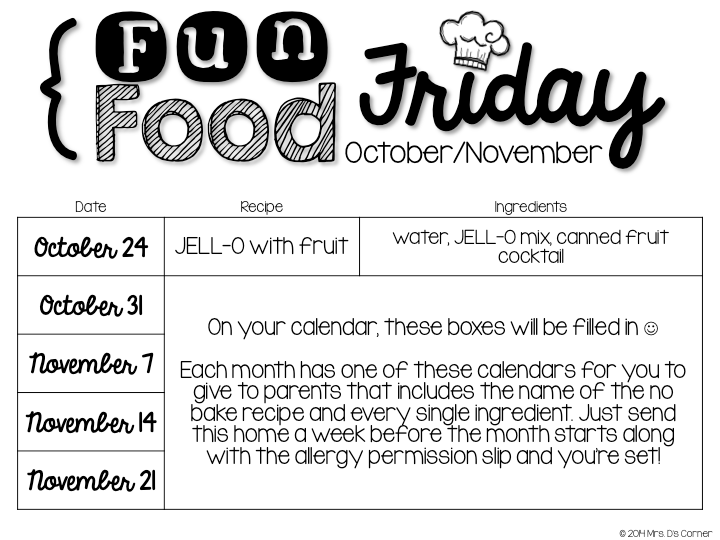 Fun
Food
Friday
October/November
Date Recipe Ingredients
October 24 JELL-O with fruit water, JELL-O mix, canned fruit
cocktail
October 31
November 7
November 14
November 21
On your calendar, these boxes will be filled in ☺
Each month has one of these calendars for you to
give to parents that includes the name of the no
bake recipe and every single ingredient. Just send
this home a week before the month starts along
with the allergy permission slip and you're set!
© 2014 Mrs. D's Corner